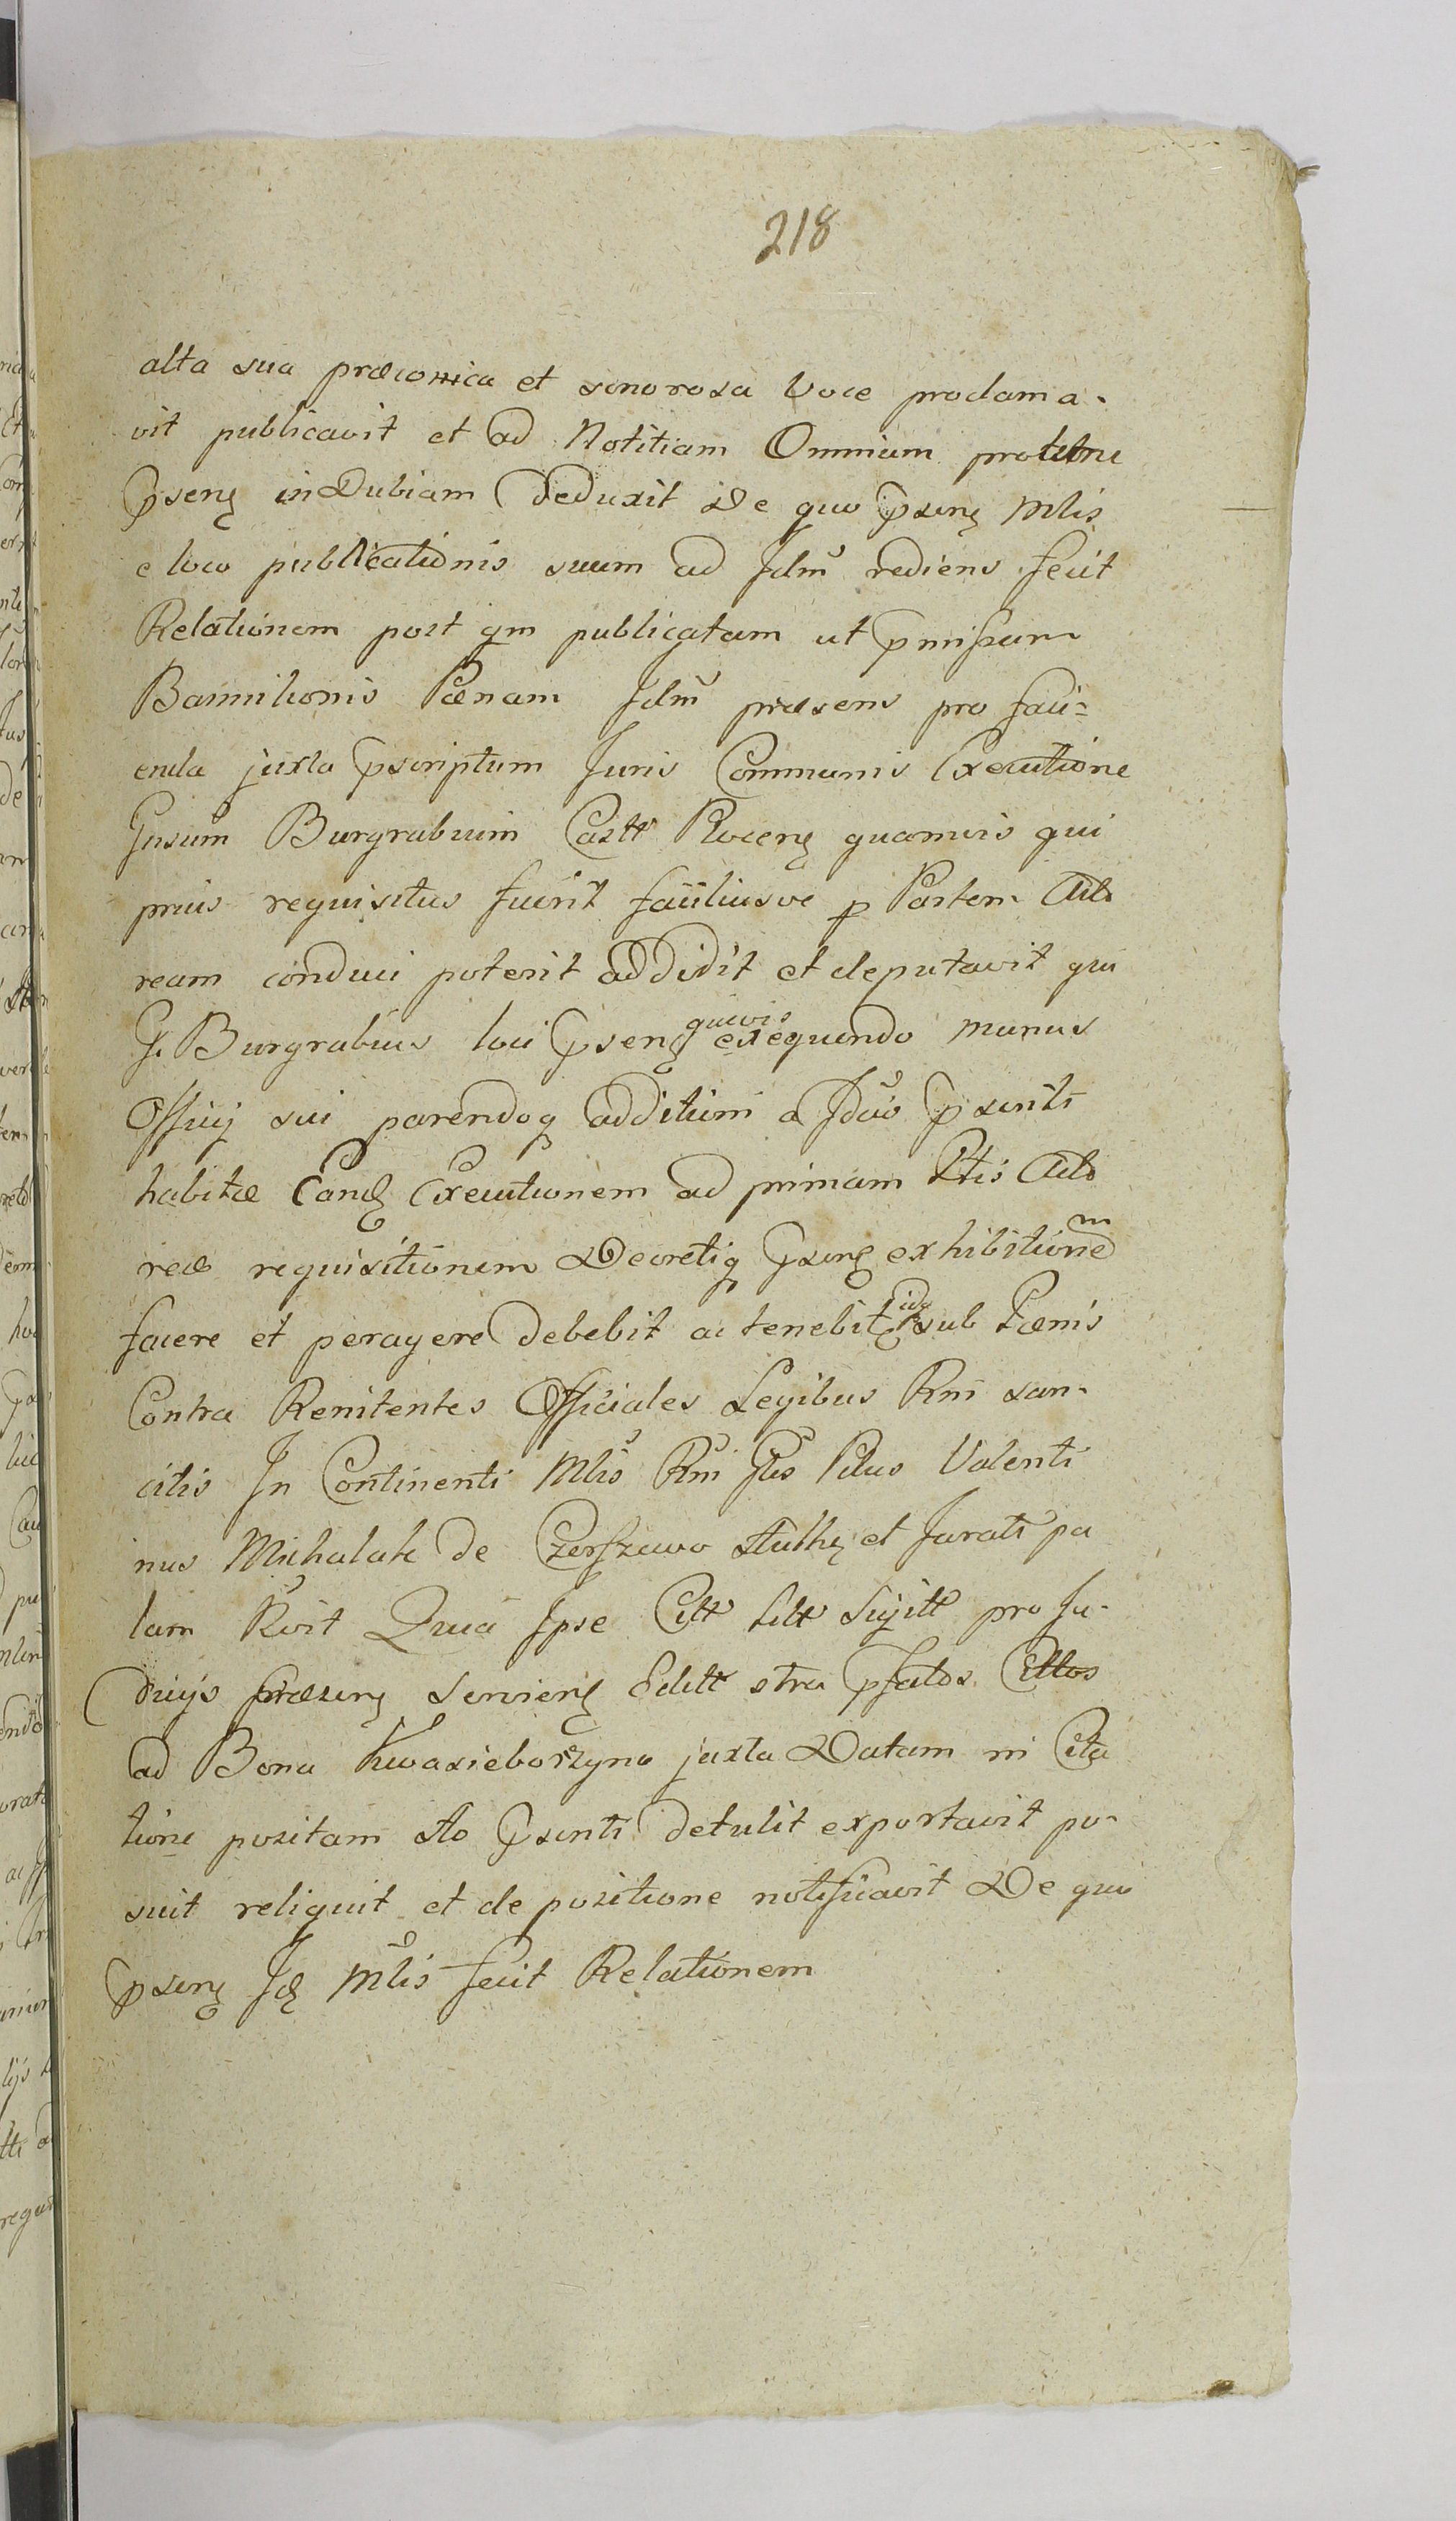 218
alta sua præconica et sonorosa Voce proclama-
vit publicavit et ad Notitiam Omnium protune
psens indubiam deduxit De quo psens Mlis
e loco publicationis suum ad Jdm rediens fecit
Relationem post qm publicatam ut pmissum
Bannitionis Pænam Jdm præsens pro faci=
enda juxta pscriptum Juris Communis Executione
Gnsum Burgrabium Castt quamvis qui
prius requisitus fuerit faciliusve p Partem Acto
ream conduci poterit addidit et deputavit qui
G. Burgrabius loci psens quivis exequendo munus
Officij sui parendoq additioni a Jdicio psenti
habitæ Eand Executionem ad primam Ptis Acto
reæ requisitionem Decretiq psens exhibitionem
facere et peragere debebit ac tenebit idq sub Pænis
Contra Renitentes Officiales Legibus Rni san-
citis In Continenti Mlis Rni Glis Pdus Valenti
nus Michalak de Czerszewo Auths et Jurats pa
lam Rvit Quia Ipse Citt Litt Sigitt pro Ju-
dicijs præsens Serviens Editt ctra pfatos Cittos
ad Bona Kwasieborzyno juxta Datam in Cita
tione positam Ao psenti detulit exportavit po-
suit reliquit et de positione notificavit De quo
psens Jd Mlis fecit Relationem